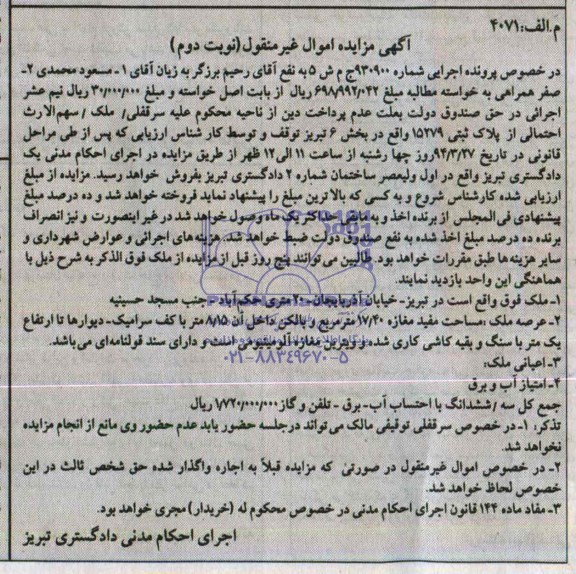 م.الف:۴۰۷۱
آگهی مزایده اموال غیرمنقول(نوبت دوم)
در خصوص پرونده اجرایی شماره ۹۳۰۹۰۰ج م ش ۵ به نفع آقای رحیم برزگر به زیان آقای ۱ـ مسعود محمدی ۲ـ
صفر همراهی به خواسته مطالبه مبلغ ۶۹۸/۹۹۲/۰۴۲ ریال از بابت اصل خواسته و مبلغ ۳۰/۰۰۰/۰۰۰ ریال نیم عشر
اجرائی در حق صندوق دولت بعلت عدم پرداخت دین از ناحیه محکوم علیه سرقفلی/ ملک /سهم‌الارث
احتمالی از پلاک ثبتی ۱۵۲۷۹ واقع در بخش ۶ تبریز توقف و توسط کار شناس ارزیابی که پس از طی مراحل
قانونی در تاریخ ۹۴/۳/۲۷روز چها رشنبه از ساعت ۱۱ الی۱۲ ظهر از طریق مزایده در اجرای احکام مدنی یک
دادگستری تبریز واقع در اول ولیعصر ساختمان شماره ۲ دادگستری تبریز بفروش خواهد رسید. مزایده از مبلغ
ارزیابی شده کارشناس شروع و به کسی که بالا ترین مبلغ را پیشنهاد نماید فروخته خواهد شد و ده درصد مبلغ
پیشنهادی فی‌المجلس از برنده اخذ و به مابقی حداکثر یک ماه وصول خواهد شد در غیر اینصورت و نیز انصراف
برنده ده درصد مبلغ اخذ شده به نفع صندوق دولت ضبط خواهد شد. هزینه‌های اجرائی و عوارض شهرداری و
سایر هزینه‌ها طبق مقررات خواهد بود. طالبین می‌توانند پنج روز قبل از مزایده از ملک فوق الذکر به شرح ذیل با
هماهنگی این واحد بازدید نمایند.
۱-ملک فوق واقع است در تبریز- خیابان آذربایجان-۲۰ متری حکم‌آباد- جنب مسجد حسینیه
۲-عرصه ملک :مساحت مفید مغازه ۱۷/۴۰ مترمربع و بالکن داخل آن ۸/۱۵ متر با کف سرامیک- دیوارها تا ارتفاع
یک متر با سنگ و بقیه کاشی کاری شده و ویترین مغازه آلومینیومی است و دارای سند قولنامه‌ای می‌باشد.
۰۲۱-۸۸۳۴۹۶۷۰-۵
۳-اعیانی ملک:
۴-امتیاز آب و برق
جمع کل سه /ششدانگ با احتساب آب- برق - تلفن و گاز ۱/۷۲۰/۰۰۰/۰۰۰ ریال
تذکر: ۱- در خصوص سرقفلی توقیفی مالک می‌تواند درجلسه حضور یابد عدم حضور وی مانع از انجام مزایده
نخواهد شد.
۲- در خصوص اموال غیرمنقول در صورتی که مزایده قبلاً به اجاره واگذار شده حق شخص ثالث در این
خصوص لحاظ خواهد شد.
۳- مفاد ماده ۱۴۴ قانون اجرای احکام مدنی در خصوص محکوم له (خریدار) مجری خواهد بود.
اجرای احکام مدنی دادگستری تبریز